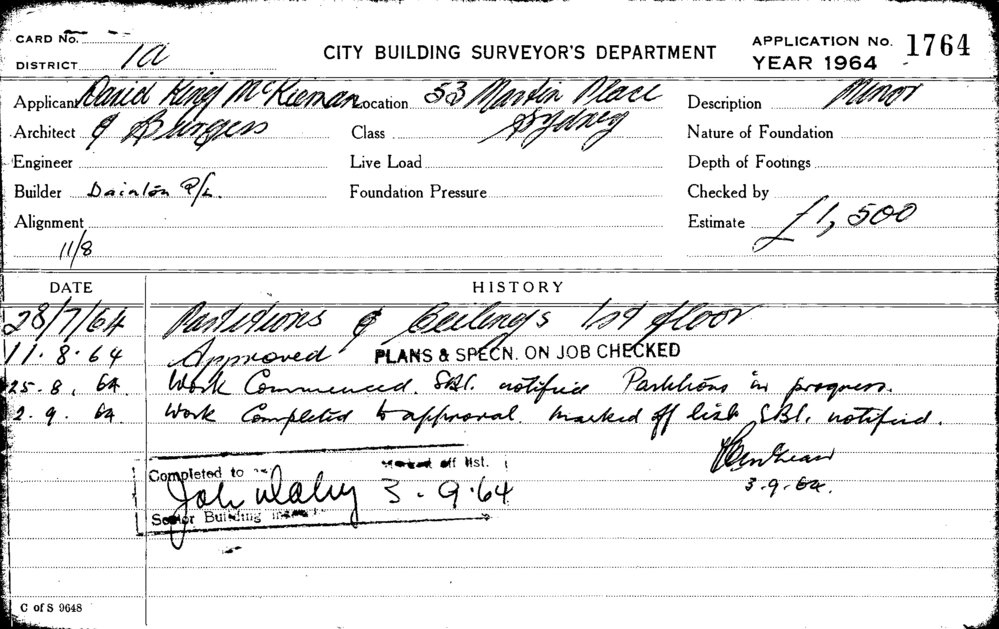 CARD No.
DISTRICT 1a
CITY BUILDING SURVEYOR'S DEPARTMENT
APPLICATION No. 1764
YEAR 1964
Applicant David King McKiernan
Location 53 Martin Place
Description Minor
Architect & Burgess
Class Sydney
Nature of Foundation
Engineer
Live Load
Depth of Footings
Builder P/L.
Foundation Pressure
Checked by
Alignment
Estimate £1,500
11/8
DATE HISTORY
28/7/64 Partitions & Ceilings 1st floor
11.8.64 Approved PLANS & SPECN. ON JOB CHECKED
25.8.64. Work Commenced. SBI. notified Partitions in progress.
2.9.64. Work Completed to approval. Marked off list SBI. notified.
3.9.64.
Completed to Marked off list.
3.9.64
Senior Building
C of S 9648